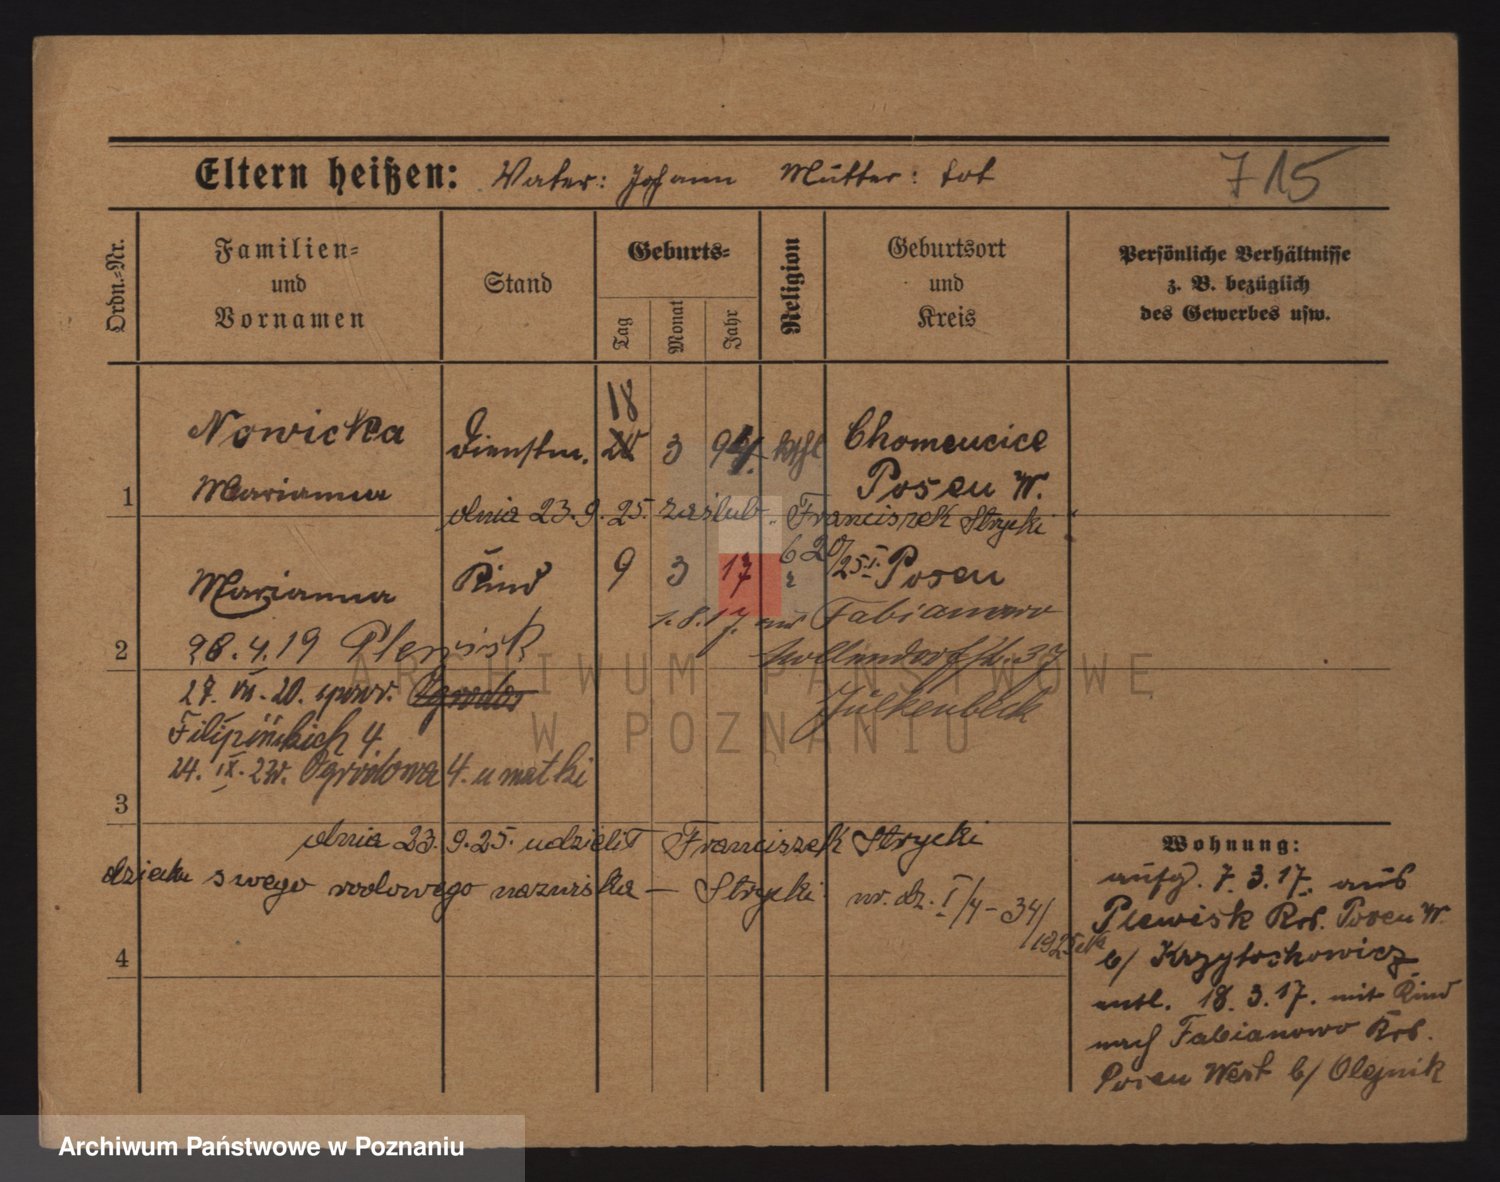 Eltern heißen: Vater: Johann Mutter: tot
715
Ordn.=Nr.
Familien=
und
Vornamen
Stand
Geburts=
Tag
Monat
Jahr
Religion
Geburtsort
und
Kreis
Persönliche Verhältnisse
z. B. bezüglich
des Gewerbes usw.
18
Nowicka Dienstm. 3 94. kath Chomencice
1 Marianna Posen W.
dnia 23.9.25. zaślub. Franciszek Strycki
Marianna Kind 9 3 17 Posen
1.8.17. aus Fabianowo
2 28.4.19 Plewisk
27. VII. 20. Ogrodow
Filipińskich 4.
24. IX. 22r. Ogrodowa 4. u matki
3
dnia 23.9.25. udzielił Franciszek Strycki
dziecku swego rodowego nazwiska — Strycki nr. dz. I/4-34/
1925
4
Wohnung:
aufg. 7.3.17. aus
Plewisk Krs. Posen W.
b/ Krzytoskowicz
entl. 18.3.17. mit Kind
nach Fabianowo Krs.
Posen West b/ Olejnik
ARCHIWUM PAŃSTWOWE
W POZNANIU
Archiwum Państwowe w Poznaniu